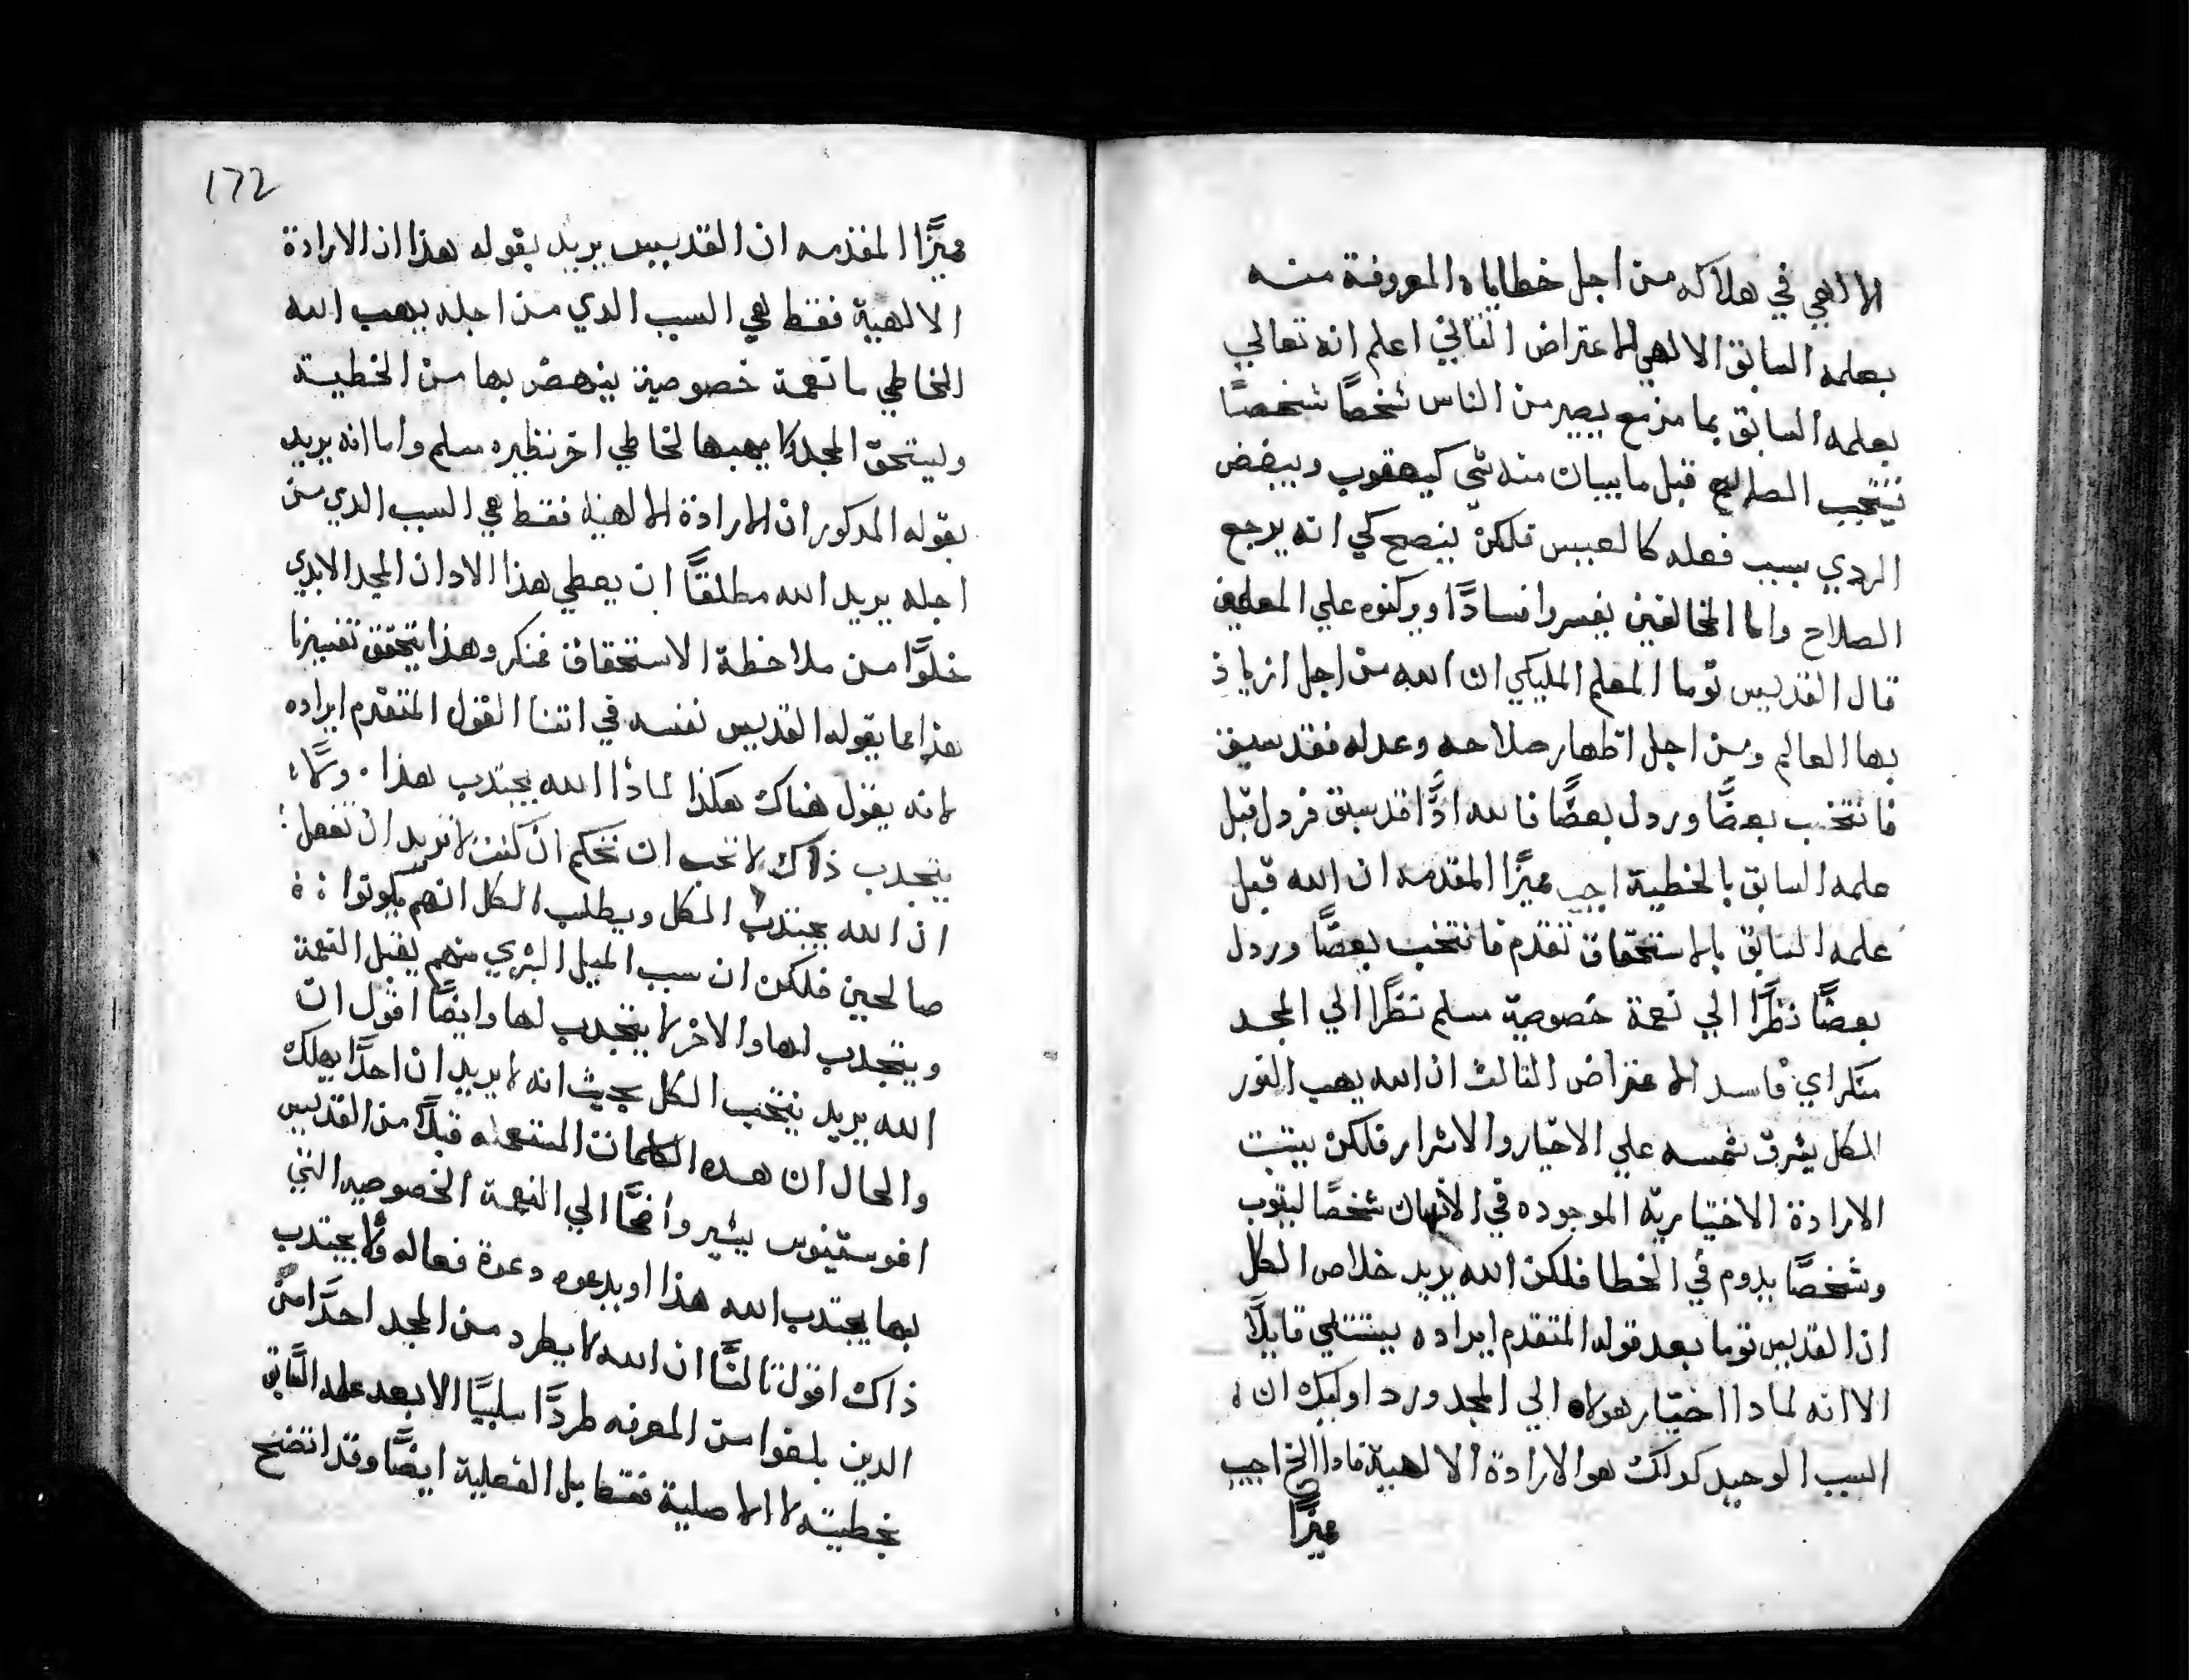 الالهي في هلاكه من اجل خطاياه المعروفة منه
بعلمه السابق الالهي الاعتراض التاني اعلم انه تعالي
بعلمه السابق بما مزمع يصير من الناس شخصًا شخصًا
ينتخب الصالح قبل ما يبان منه شي كيعقوب ويبغض
الردي بسبب فعله كالعيس فلكن ينصح كي انه يرجع
الصلاح واما المخالفين يفسروا فسادًا ويركنوه علي المعلمين
قال القديس توما المعلم المليكي ان الله من اجل ازياد
بها العالم ومن اجل اظهار صلاحه وعدله فقد سبق
فانتخب بعضًا وردل بعضًا فالله ادًا قد سبق فردل قبل
علمه السابق بالخطية اجيب مميزًا المقدمه ان الله قبل
علمه السابق بالاستحقاق تقدم فانتخب بعضًا وردل
بعضًا نظرًا الي نعمة خصوصية سلم نظرًا الي المجد
منكر اي فاسد الاعتراض التالت ان الله يهب النور
للكل يشرق شمسه علي الاخيار والاشرار فلكن بيتبت
الارادة الاختيارية الموجوده في الانسان شخصًا ليتوب
وشخصًا يدوم في الخطا فلكن الله يريد خلاص الكل
ان القديس توما بعد قوله المتقدم ايراده بيتتلي قايلًا
الا انه لمادا اختيار هولاء الي المجد ورد اوليك ان
السبب الوحيد كدلك هو الارادة الالهية فادا الخ اجيب
مميزًا
172
مميزًا المقدمه ان القديس يريد بقوله هذا ان الارادة
الالهية فقط هي السبب الدي من اجله يهب الله
الخاطي ما نعمة خصوصية ينهض بها من الخطية
ويستحق المجد لا يهبها لخاطي اخر نظيره سلم واما انه يريد
بقوله المدكور ان الارادة الالهية فقط هي السبب الدي من
اجله يريد الله مطلقًا ان يعطي هذا الادان المجد الابدي
خلوًا من ملاحظة الاستحقاق فمنكر وهذا يتحقق تفسيرنا
هذا بما يقوله القديس نفسه في اتنا القول المتقدم ايراده
لانه يقول هناك هكذا لماذا الله يجتدب هذا ولما
يتجدب ذاك لا تحب ان تحكم ان كنت لا تريد ان تفعل
ان الله يجتدب الكل ويطلب الكل انهم يكونوا
صالحين فلكن ان سبب الميل البشري منهم يقبل النعمة
ويتجدب لها والاخر لا يتجدب لها وايضًا اقول ان
الله يريد ينتخب الكل بحيث انه لا يريد ان احدًا يهلك
والحال ان هده الكلمات المتقدمه قبلًا من القديس
اغوستينوس يشير واضحًا الي النعمة الخصوصيه التي
بها يجتدب الله هذا او يدعوه دعوة فعاله ولا يجتدب
ذاك اقول تالتًا ان الله لا يطرد من المجد احدًا من
الدين بلغوا سن المعرفه طردًا سلبيًا الا بعد علمه السابق
بخطيته لا الاصلية فقط بل الفعلية ايضًا وقد اتضح